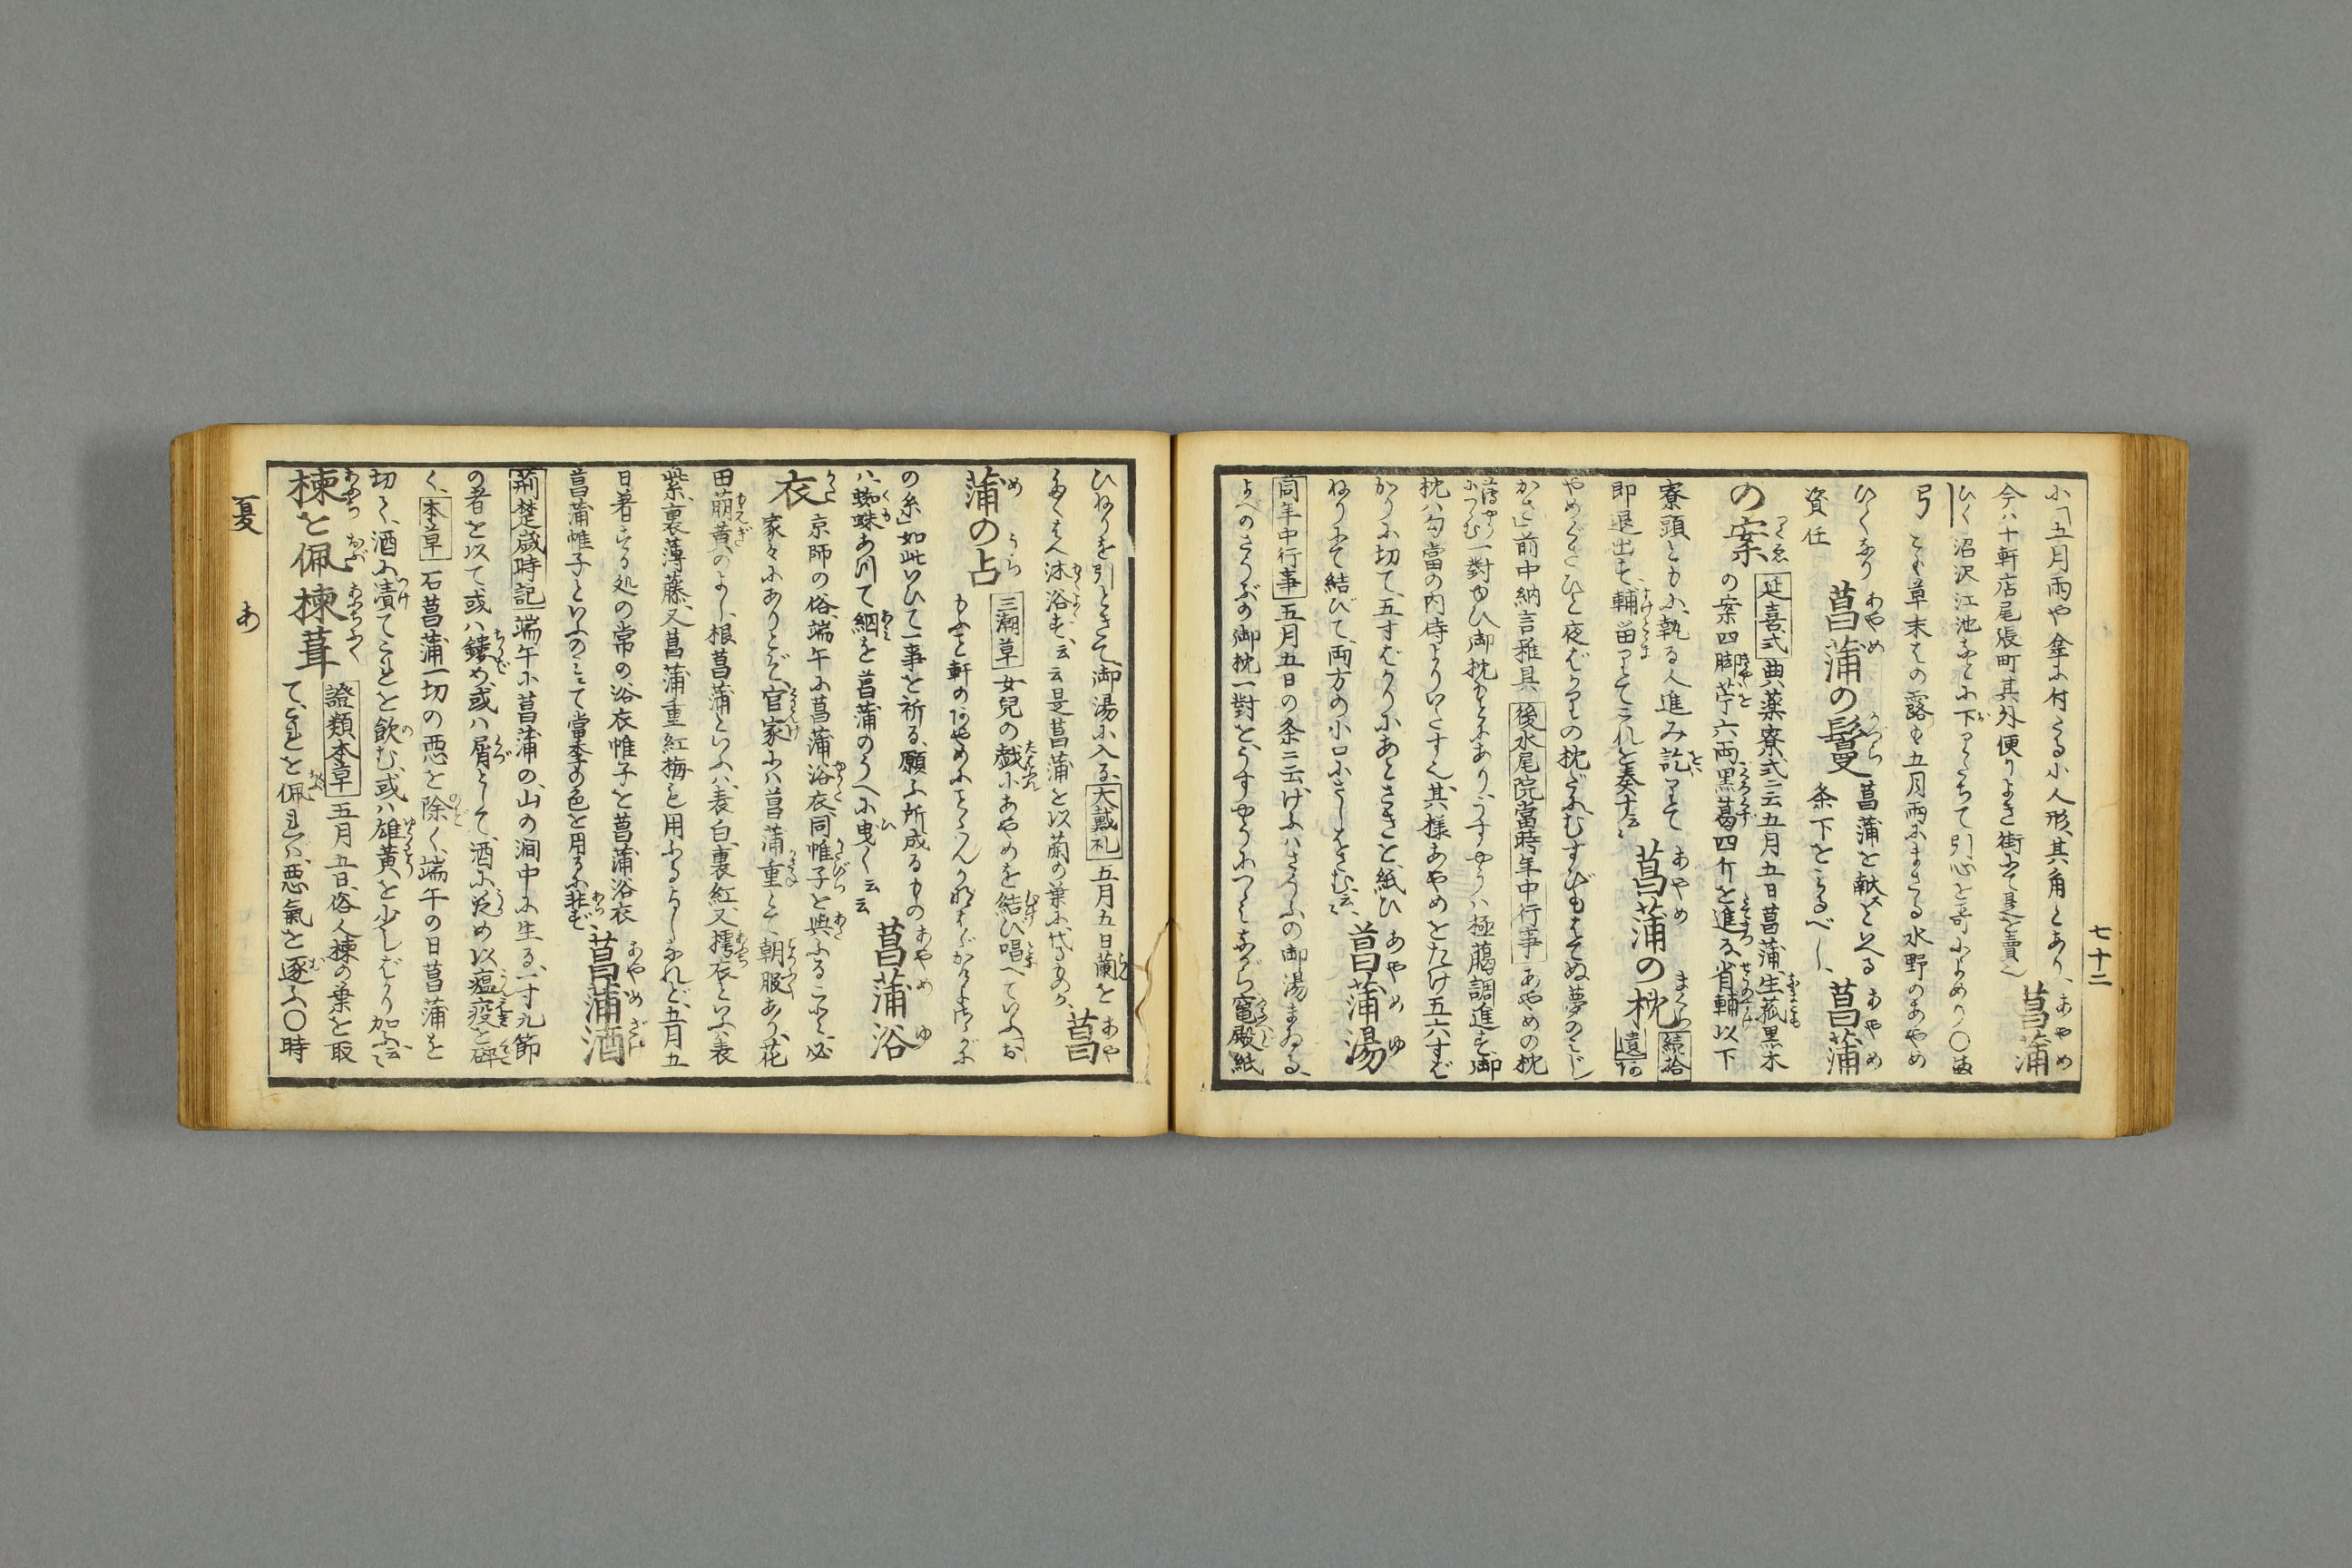 七十二
小「五月雨や傘に付たる小人形、其角とあり、
あやめ
菖蒲
今ハ十軒店尾張町其外便りよき街にて是を賣也
ひく 沼沢江池などに下りたちて引心を哥によめり〇
引 こも草末はの露も五月雨にまさる水野のあやめ
ひくなり
資任
あやめ かづら
菖蒲の鬘
菖蒲を献るといへる
条下をみるべし、
あやめ
菖蒲
の案
延喜式 典薬寮式云五月五日菖蒲、生菰黒木
の案四脚苧六両黒葛四斤を進る、省輔以下
寮頭ともに、執る人進み訖りて
即退出す、輔留りてこれを奏す云々
あやめ まくら
菖蒲の枕
續拾
遺 阿
やめぐさひと夜ばかりの枕だにむすびもはてぬ夢のみじ
かさ」前中納言雅具 後水尾院當時年中行事 あやめの枕
一對ゆひ御枕もとにあり、うすやうハ極﨟調進す、御
枕ハ勾當の内侍よりいだす也、其様あやめをたけ五六すば
かりに切て、五寸ばかりにあとさきを、紙ひ
ねりにて結びて、両方の小口にさしはさむ云々、
あやめ ゆ
菖蒲湯
同年中行事 五月五日の条云、けふハさうぶの御湯まゐる、
よべのさうぶの御枕一對を、うすやうにつゝみながら竃殿紙
ひねりを引ときて、御湯に入る、大戴礼 五月五日蘭を
多くたくはへ沐浴す、云云是菖蒲を以蘭の葉に代るものか、
あや
菖
め うら
蒲の占
三湖草 女兒の戯にあやめを結び唱へていふ、お
もふこと軒のあやめにことゝはんかなはゞかけよさゝがに
の糸」如此いひて一事を祈る、願ふ所成るもの
ハ、蜘蛛ありて網を菖蒲のうへに曳く云云
あやめ ゆ
菖蒲浴
かた
衣
京師の俗、端午に菖蒲浴衣、同帷子を與ふること必
家々にありとぞ、官家にハ菖蒲重とて、朝服あり、花
田萌黄のよし、根菖蒲といふハ、表白、裏紅、又樗衣といふ、表
紫、裏薄藤、又菖蒲重紅梅を用ふるよしなれど、五月五
日着する処の常の浴衣帷子を菖蒲浴衣
菖蒲帷子といふのミにて當季の色を用るに非ず、
あやめ ざけ
菖蒲酒
荊楚歳時記 端午に菖蒲の、山の澗中に生る、一寸九節
の者を以て或ハ鏤め、或ハ屑として、酒に泛め以、瘟疫を辟
く、本草 石菖蒲一切の悪を除く、端午の日菖蒲を
切て、酒に漬てこれを飲む、或ハ雄黄を少しばかり加ふ云々
あふち おぶ あふちふく
楝を佩 楝葺
證類本草 五月五日、俗人楝の葉を取
て、これを佩れバ、悪氣を逐ふ〇時
夏 あ